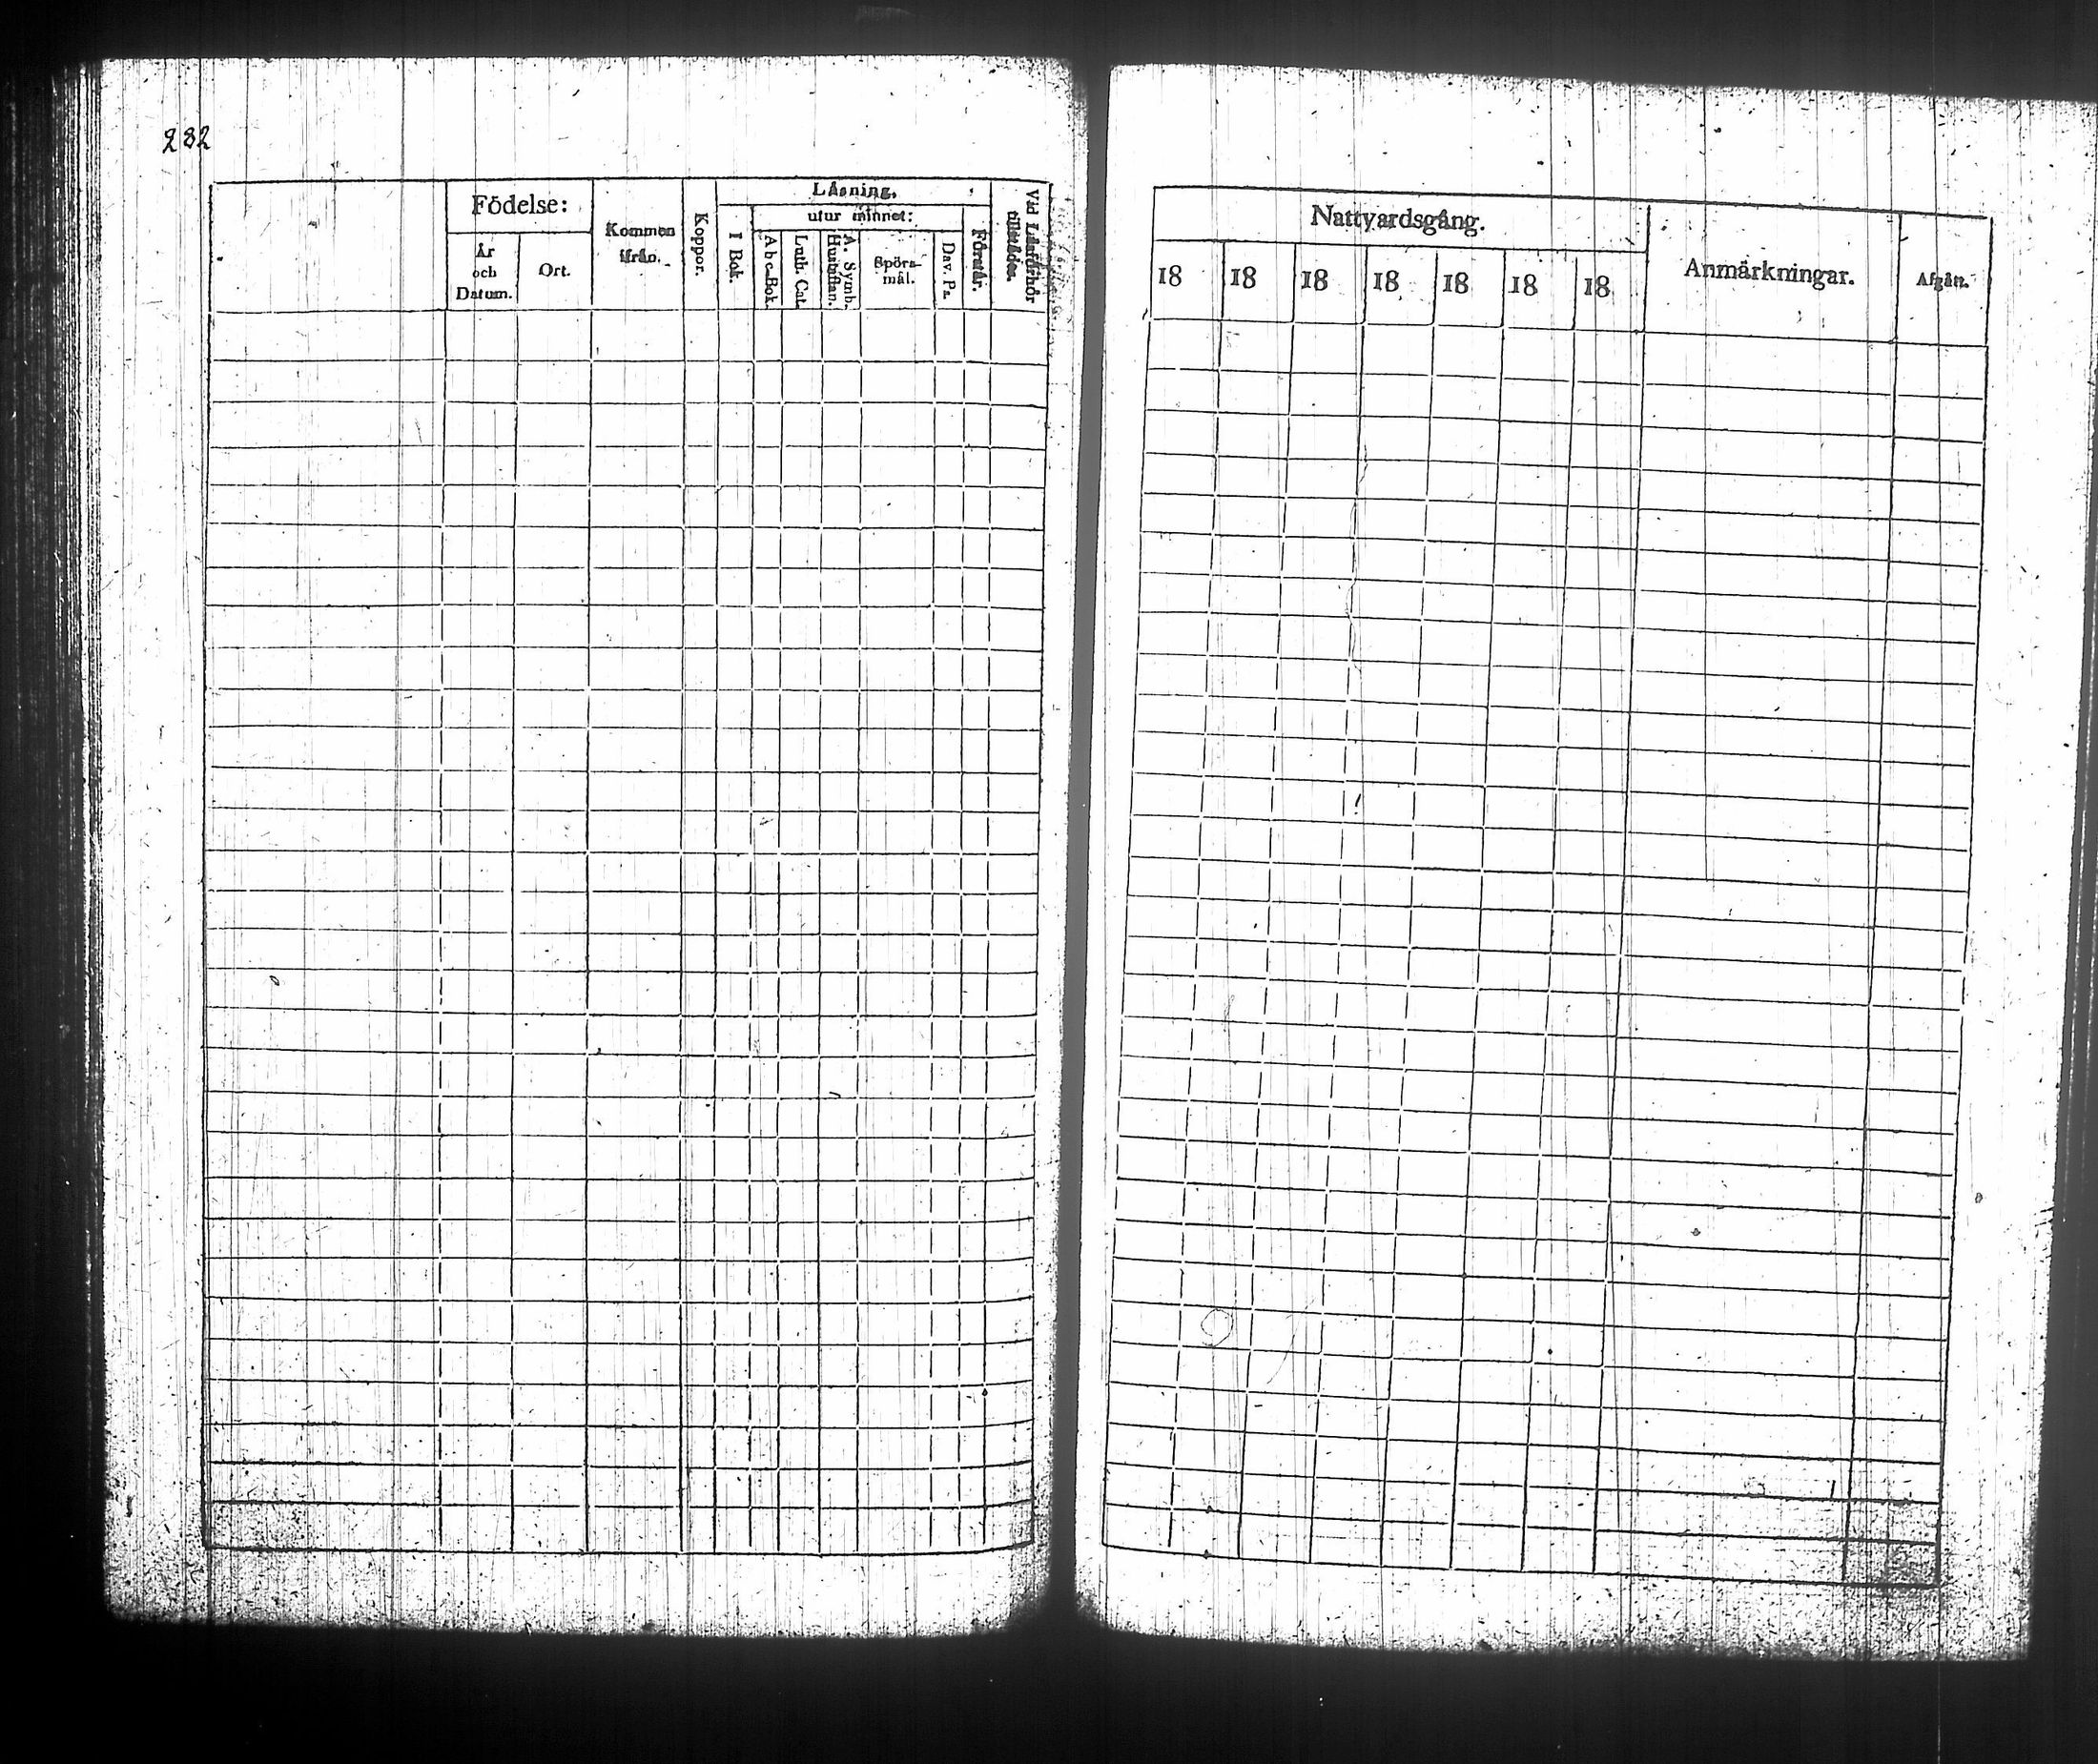 282
Födelse:
År
och
Datum.
Ort.
Kommen
ifrån.
Koppor.
Läsning.
I Bok.
utur minnet:
Abc-Bok.
Luth. Cat.
A. Symb.
Hustaflan.
Spörs-
mål.
Dav. Ps.
Förstår.
Vid Läsförhör
tillstädes.
Nattvardsgång.
18 18 18 18 18 18 18
Anmärkningar.
Afgått.